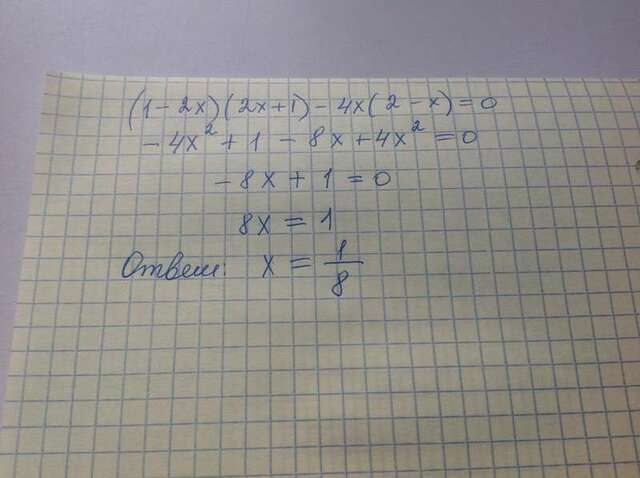 (1-2x)(2x+1)-4x(2-x)=0
-4x²+1-8x+4x²=0
-8x+1=0
8x=1
Ответ: x=1/8